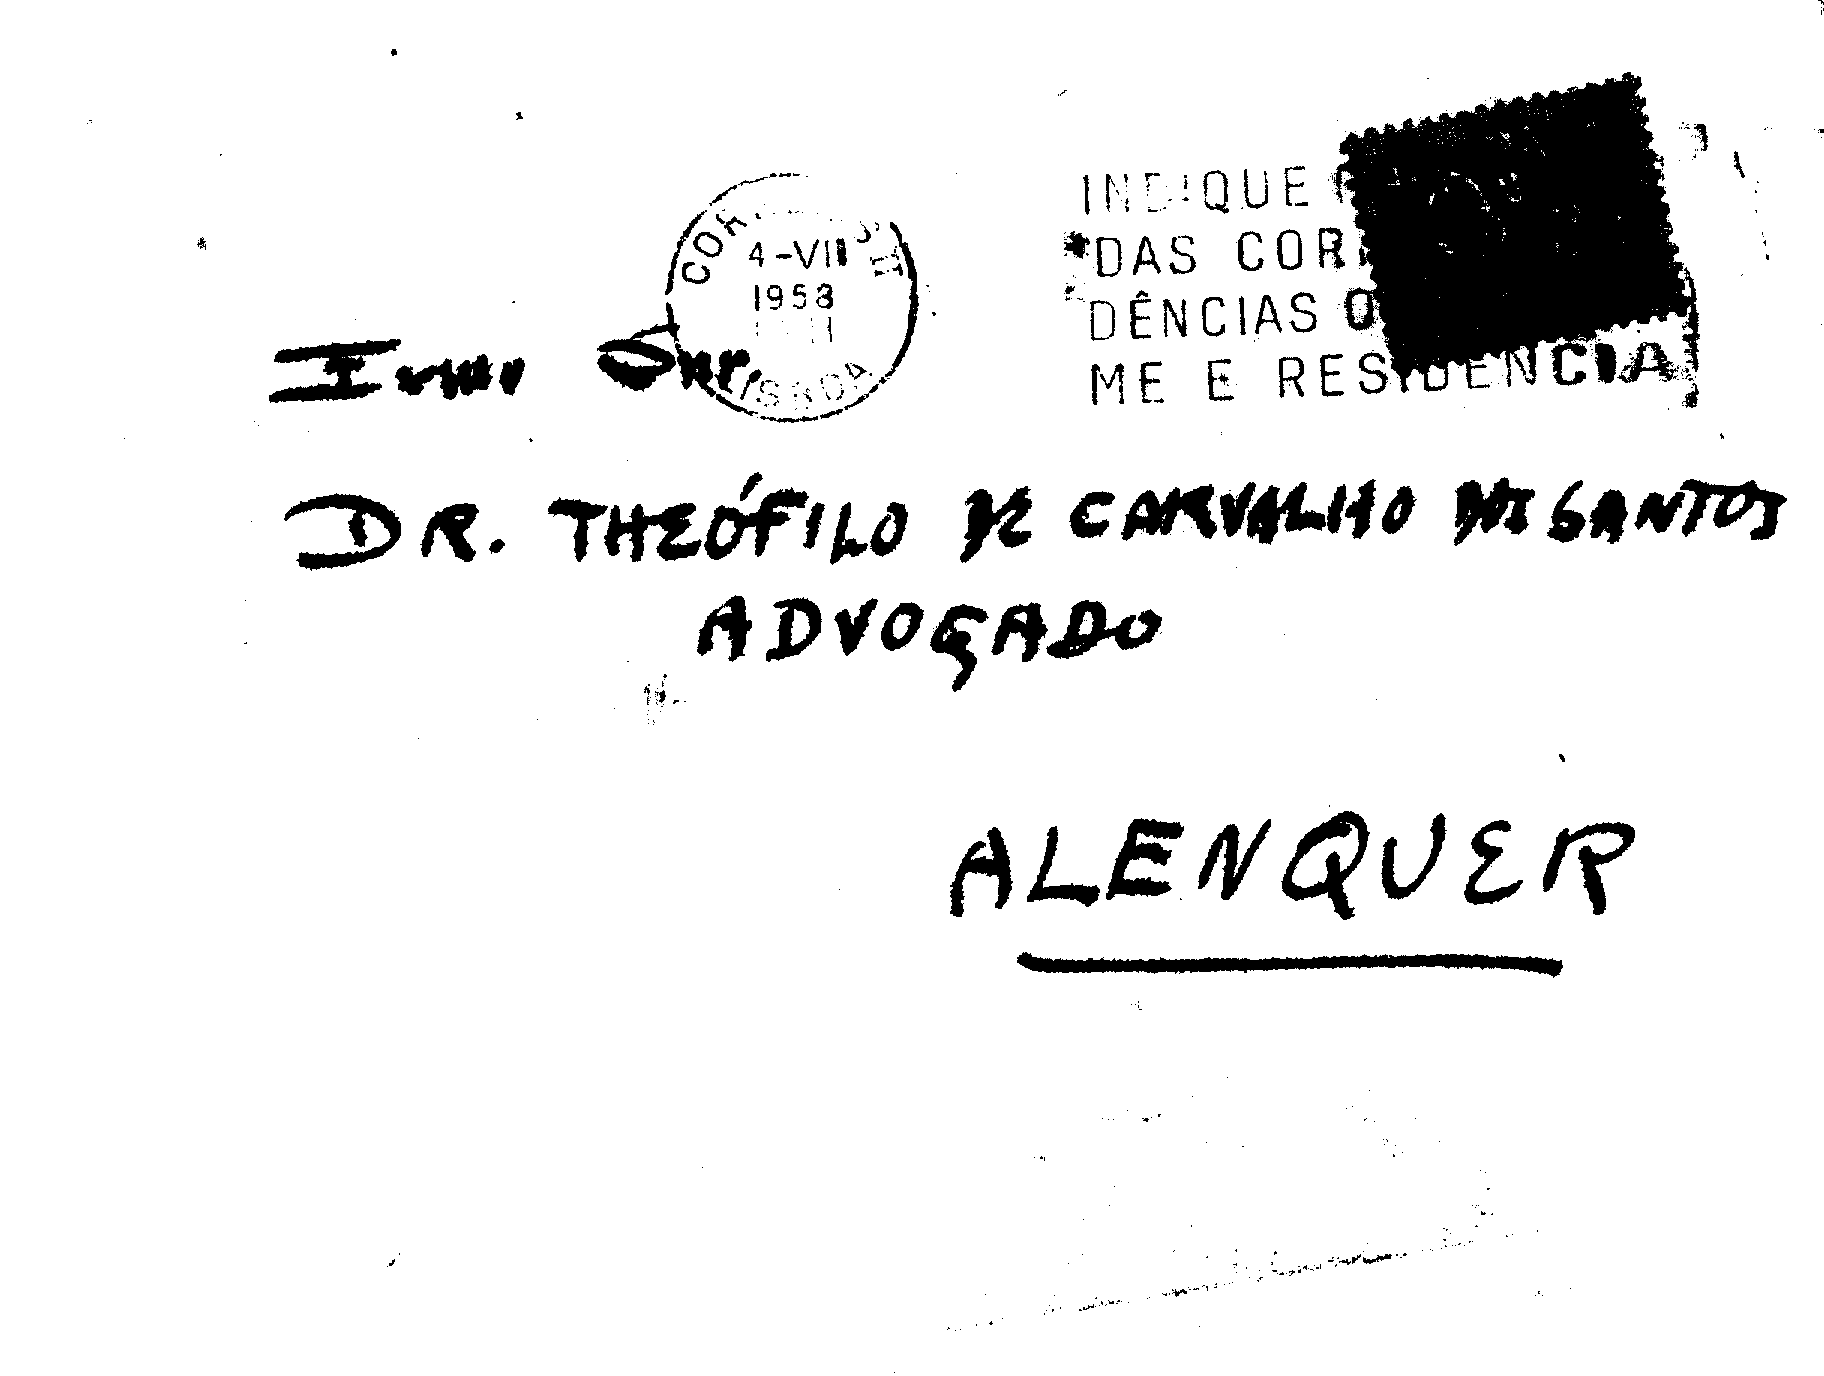 4-VII
1958
LISBOA
INDIQUE
DAS COR
DÊNCIAS O
ME E RESIDENCIA
Exmo Snr.
DR. THEÓFILO DE CARVALHO DOS SANTOS
ADVOGADO
ALENQUER